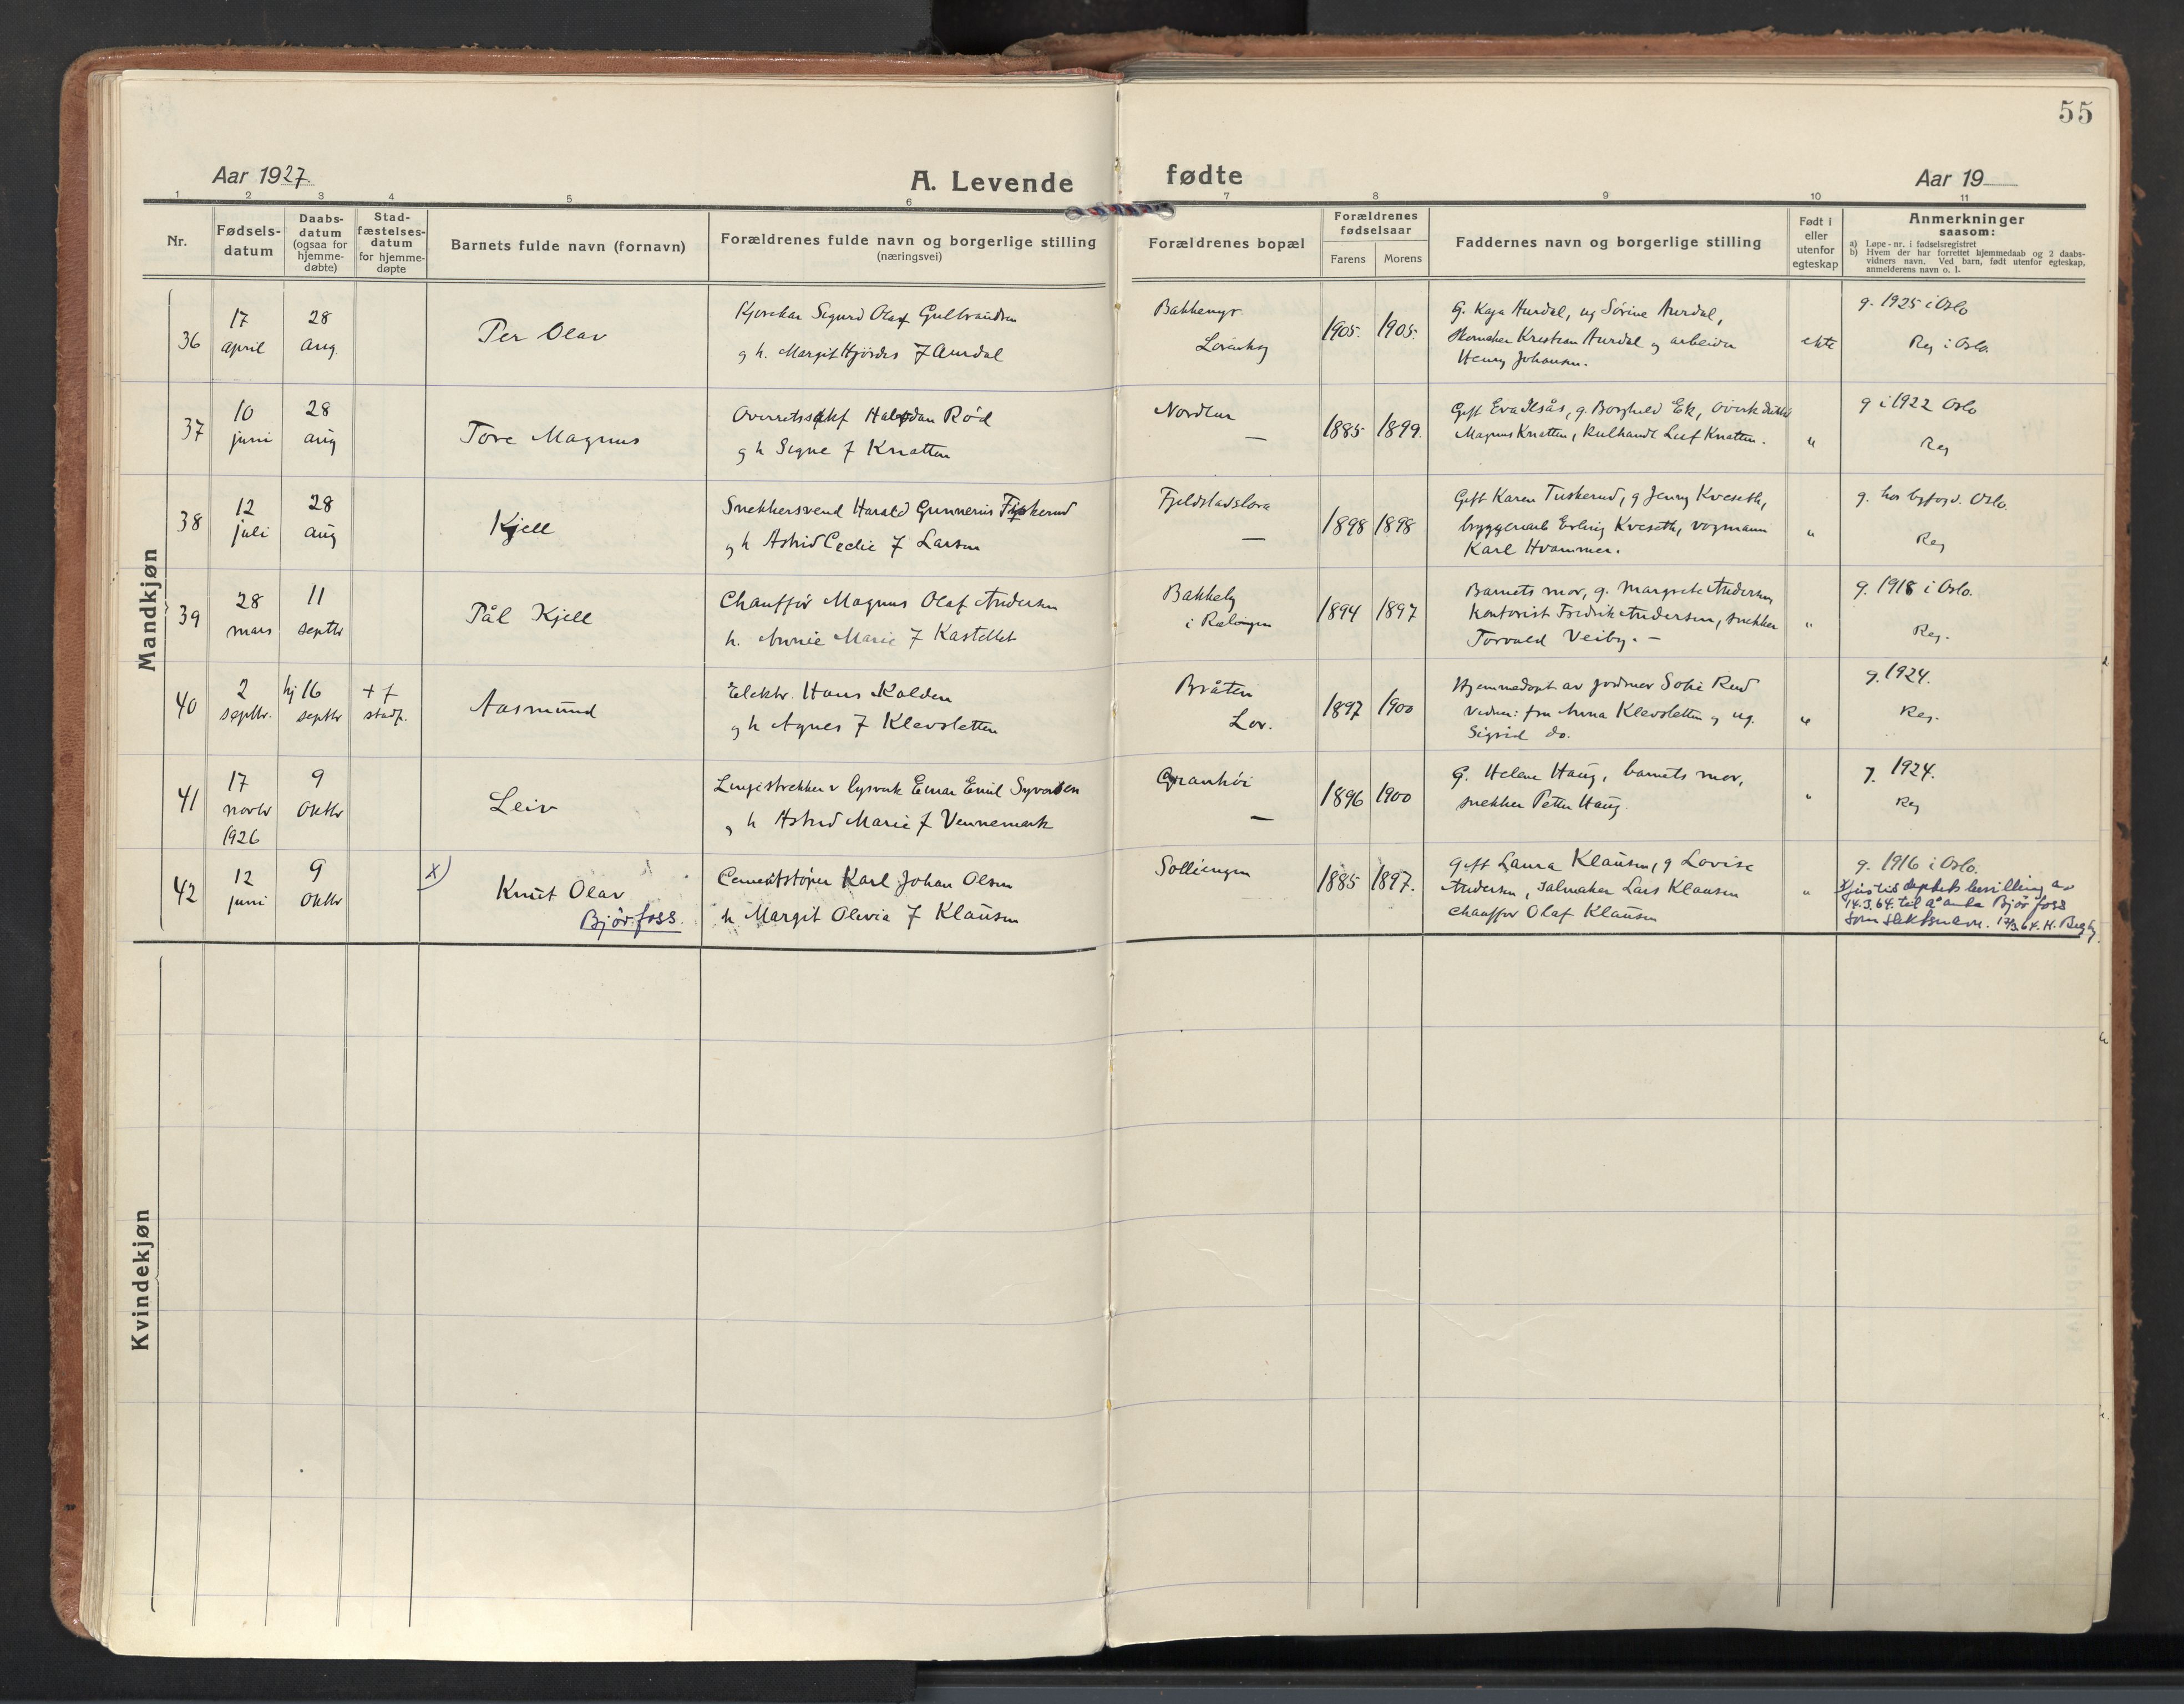 55
Aar 1927.
A. Levende
fødte
Aar 19
1 2 3 4 5 6 7 8 9 10 11
Nr.
Fødsels-
datum
Daabs-
datum
(ogsaa for
hjemme-
døbte)
Stad-
fæstelses-
datum
for hjemme-
døpte
Barnets fulde navn (fornavn)
Forældrenes fulde navn og borgerlige stilling
(næringsvei)
Forældrenes bopæl
Forældrenes
fødselsaar
Farens
Morens
Faddernes navn og borgerlige stilling
Født i
eller
utenfor
egteskap
Anmerkninger
saasom:
a) Løpe-nr. i fødselsregistret
b) Hvem der har forrettet hjemmedaab og 2 daabs-
vidners navn. Ved barn, født utenfor egteskap,
anmelderens navn o. l.
Mandkjøn
36
17
april
28
aug.
Per Olav
Sigurd Olaf Gulbrandsen
g h. Margit Hjördis f Aurdal
Bakkengr
Lörenskog
1905.
1905.
G. Kaja Aurdal, ug Sörine Aurdal,
skomaker Kristian Aurdal og arbeider
Henry Johansen.
ekte
g. 1925 i Oslo
Reg i Oslo.
37
10
juni
28
aug
Tore Magnus
Overretssakf Halvdan Röd
g h Signe f Knatten
Nordlun
—
1885
1899.
Gift Eva Ilsås, g. Borghild Ek,
Magnus Knatten, Leif Knatten.
"
g i 1922 Oslo
Reg
38
12
juli
28
aug
Kjell
Snekkersvend Harald Gunnerius Fiskerud
g h Astrid Cecilie f Larsen
Fjeldstadslora
—
1898
1898
Gift Karen Tuskerud, g Jenny Kveseth,
bryggeriarb Erling Kveseth, vognmann
Karl Hvammen.
"
g. hos byfogd. Oslo.
Reg
39
28
mars
11
septbr
Pål Kjell
Chaufför Magnus Olaf Andersen
h. Annie Marie f Kastellet
Bakkeby
i Rælingen
1894
1897
Barnets mor, g. Margrete Andersen,
kontorist Fredrik Andersen, snekker
Torvald Veiby. —
"
g. 1918 i Oslo.
Reg.
40
2
septbr.
hj 16
septbr
+ f
stadf.
Aasmund
Elektr. Hans Kolden
g h Agnes f Klevsletten
Bråten
Lør.
1897
1900
Hjemmedöpt av jordmor Sofie Rud
Vidner: fru Anna Klevsletten og ug.
Sigrid do.
"
g. 1924.
Reg.
41
17
novbr
1926
9
Oktbr
Leiv
Linjestrekker v lysverk Einar Emil Syversen
g h Astrid Marie f Vennemark
Granhöi
—
1896
1900
G. Helene Haug, barnets mor,
snekker Petter Haug.
"
g. 1924.
Reg
42
12
juni
9
Oktbr
x)
Knut Olav
Björfoss.
Cementstøper Karl Johan Olsen
h Margit Olivia f Klausen
Solliengen
1885
1897.
Gift Laura Klausen, g Lovise
Andersen, salmaker Lars Klausen
chauffør Olaf Klausen
"
g. 1916 i Oslo.
x) Justisdeptets bevilling av
14.3.64. til å anta Bjørfoss
som slektsnavn. 17/3.64. H.
Kvindekjøn